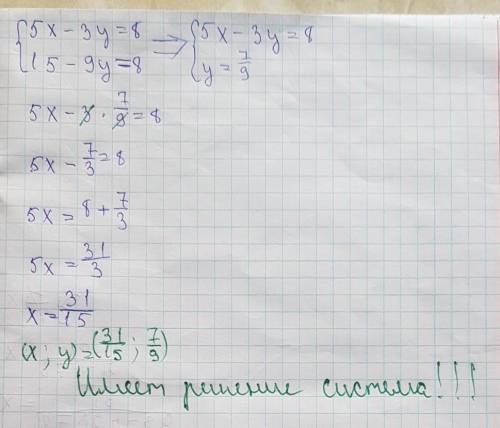 {5x - 3y = 8 => {5x - 3y = 8
{15 - 9y = 8 {y = 7/9
5x - 3 · 7/9 = 8
5x - 7/3 = 8
5x = 8 + 7/3
5x = 31/3
x = 31/15
(x; y) = (31/15; 7/9)
Имеет решение система!!!